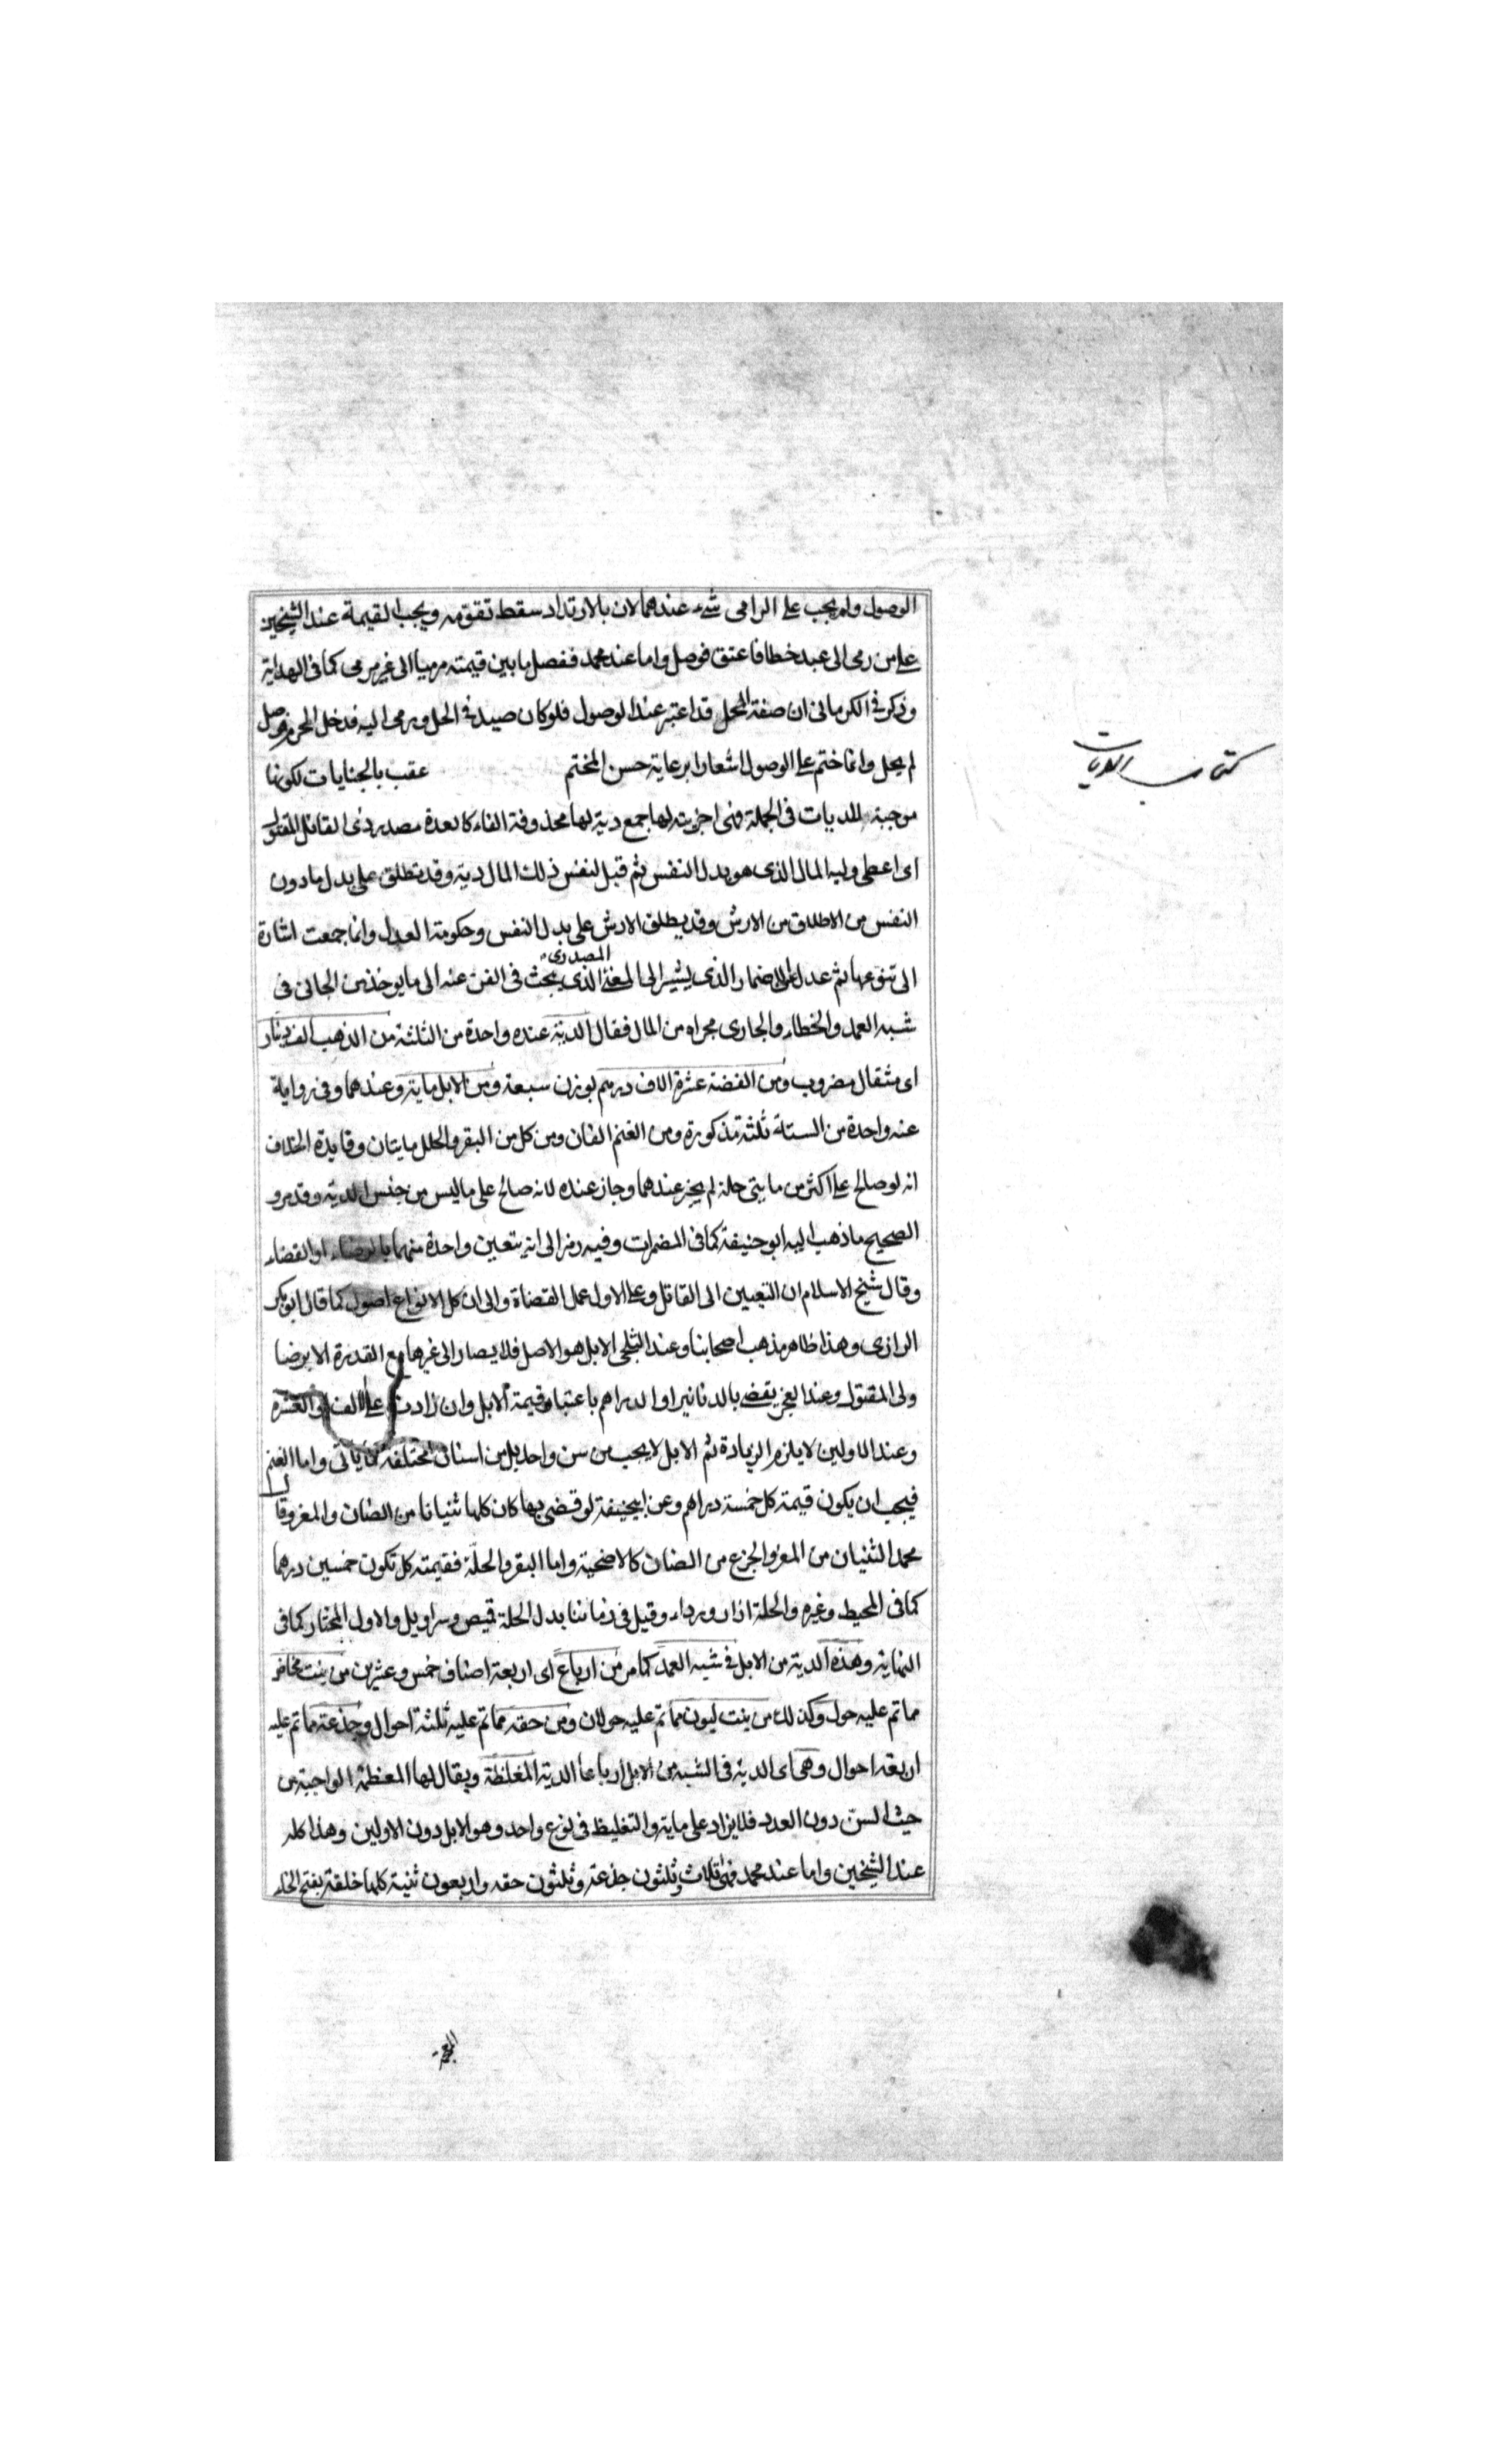 الوصول ولم يجب على الرامى شىء عندهما لان بالارتداد سقط تقومه ويجب القيمة عند الشيخين
على من رمى الى عبد خطا فاعتق فوصل واما عند محمد ففضل ما بين قيمته مرميا الى غير مرمى كما فى الهداية
وذكر فى الكرمانى ان صفة المحل قد اعتبر عند الوصول فلو كان صيد فى الحل ورمى اليه فدخل الحرم فوصل
لم يحل وانما ختم على الوصول اشعارا برعاية حسن المختم عقب بالجنايات لكونها
كتاب الديات
موجبة للديات فى الجملة فهى اجزية لها جمع دية لها محذوفة الفاء كالعدة مصدر ودى القاتل المقتول
اى اعطى وليه المال الذى هو بدل النفس ثم قيل لنفس ذلك المال دية وقد تطلق على بدل ما دون
النفس من الاطلاق من الارش وقد يطلق الارش على بدل النفس وحكومة العدل وانما جمعت اشارة
المصدرى
الى تنوعها ثم عدل الى الاضمار الذى يشير الى المعنى الذى يبحث فى الفن عنه الى ما يوخذ من الجانى فى
شبه العمد والخطاء والجارى مجراه من المال فقال الدية عنده واحدة من الثلثة من الذهب الف دينار
اى مثقال مضروب ومن الفضة عشرة الاف درهم بوزن سبعة ومن الابل ماية وعندهما وفى رواية
عنه واحدة من الستة ثلثة مذكورة ومن الغنم الفان ومن كل من البقر والحلل مايتان وفايدة الخلاف
انه لو صالح على اكثر من مايتى حلة لم يجز عندهما وجاز عنده لانه صالح على ما ليس من جنس الدية وقدرو
الصحيح ما ذهب اليه ابو حنيفة كما فى المضمرات وفيه رمز الى انه يتعين واحدة منهما بالرضاء او القضاء
وقال شيخ الاسلام ان التعيين الى القاتل وعلى الاول عمل القضاة والى ان كل الانواع اصول كما قال ابو بكر
الرازى وهذا ظاهر مذهب اصحابنا وعند الثلجى الابل هو الاصل فلا يصار الى غيرها مع القدرة الا برضا
ولى المقتول وعند العجز يقضى بالدنانير او الدراهم باعتبار قيمة الابل وان زادت على الالف او العشرة
وعند الاولين لا يلزم الزيادة ثم الابل لا يجب من سن واحد بل من اسنان مختلفة كما ياتى واما الغنم
فيجب ان يكون قيمة كل خمسة دراهم وعن ابيحنيفة لو قضى بها كان كلها ثنيانا من الضان والمعز وقال
محمد الثنيان من المعز والجزع من الضان كالاضحية واما البقر والحلة فقيمته كل تكون خمسين درهما
كما فى المحيط وغيره والحلة ازار ورداء وقيل فى زماننا بدل الحلة قميص وسراويل والاول المختار كما فى
النهاية وهذه الدية من الابل فى شبه العمد كما مر من ارباع اى اربعة اصناف خمس وعشرين من بنت مخاض
مما تم عليه حول وكذلك من بنت لبون مما تم عليه حولان ومن حقه مما تم عليه ثلثة احوال وجذعة ما تم عليه
اربعة احوال وهى اى الدية فى الشبه من الابل ارباعا الدية المغلظة ويقال لها المعظمة الواجبة من
حيث السن دون العدد فلا يزاد على ماية والتغليظ فى نوع واحد وهو الابل دون الاولين وهذا كله
عند الشيخين واما عند محمد فهى ثلاث وثلثون جذعة وثلثون حقه واربعون ثنية كلها خلقة بفتح الخاء